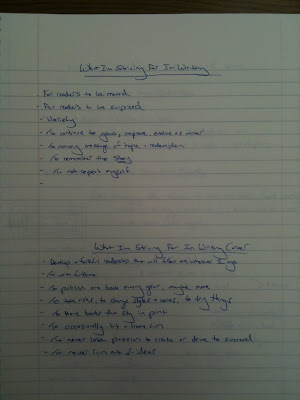 What I'm Striving For In Writing
- For readers to be moved
- For readers to be surprised
- Variety
- To continue to grow, improve, evolve as writer
- To convey message of hope + redemption
- To remember the story
- To not repeat myself
-
What I'm Striving For In Writing Career
- Develop a faithful readership that will follow me wherever I go
- To write fulltime
- To publish one book every year, maybe more
- To take risks, to change styles + voices, to try things
- To have books that stay in print
- To occasionally hit a home run
- To never lose passion to create or drive to succeed
- To never run out of ideas